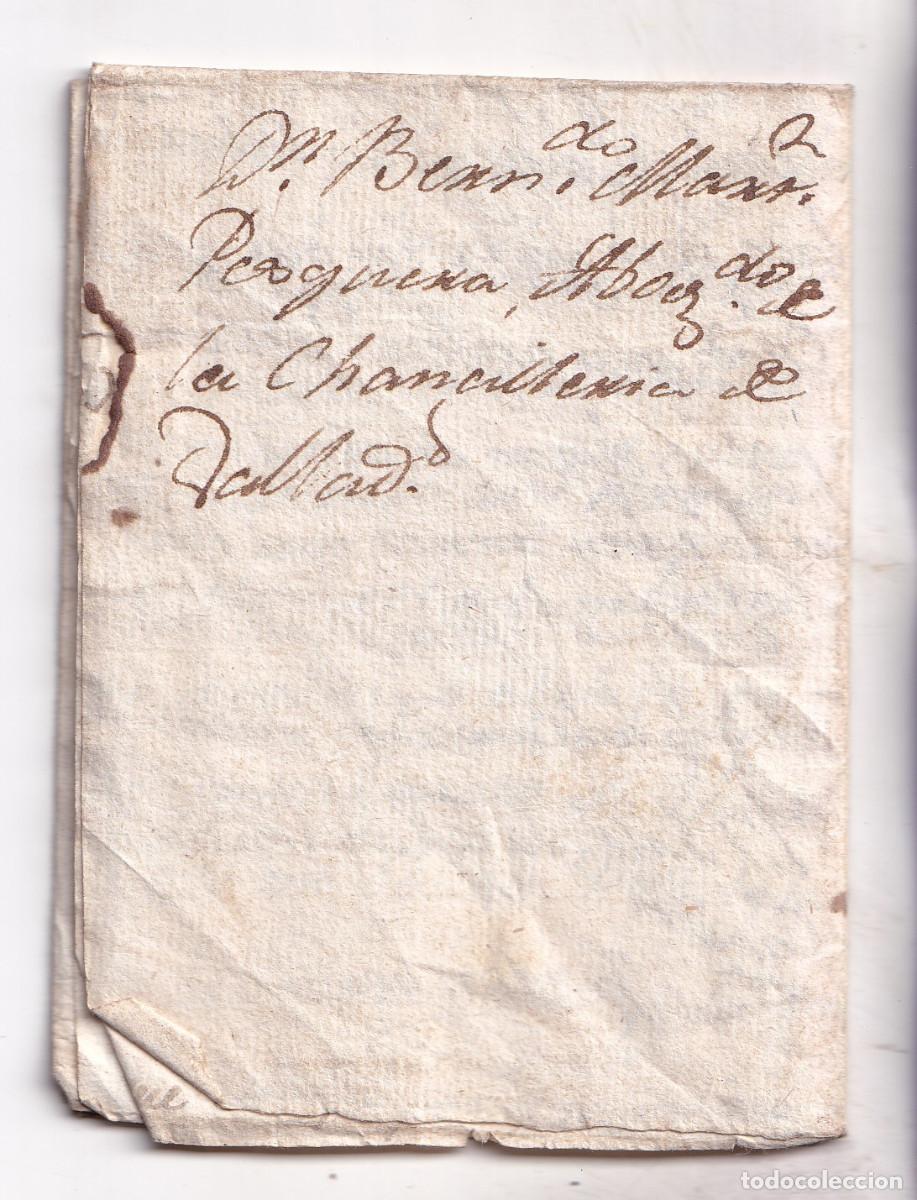 Dn. Bern.do Marr.z
Pesquera, Abog.do de
la Chancilleria de
Vallad.d
todocoleccion